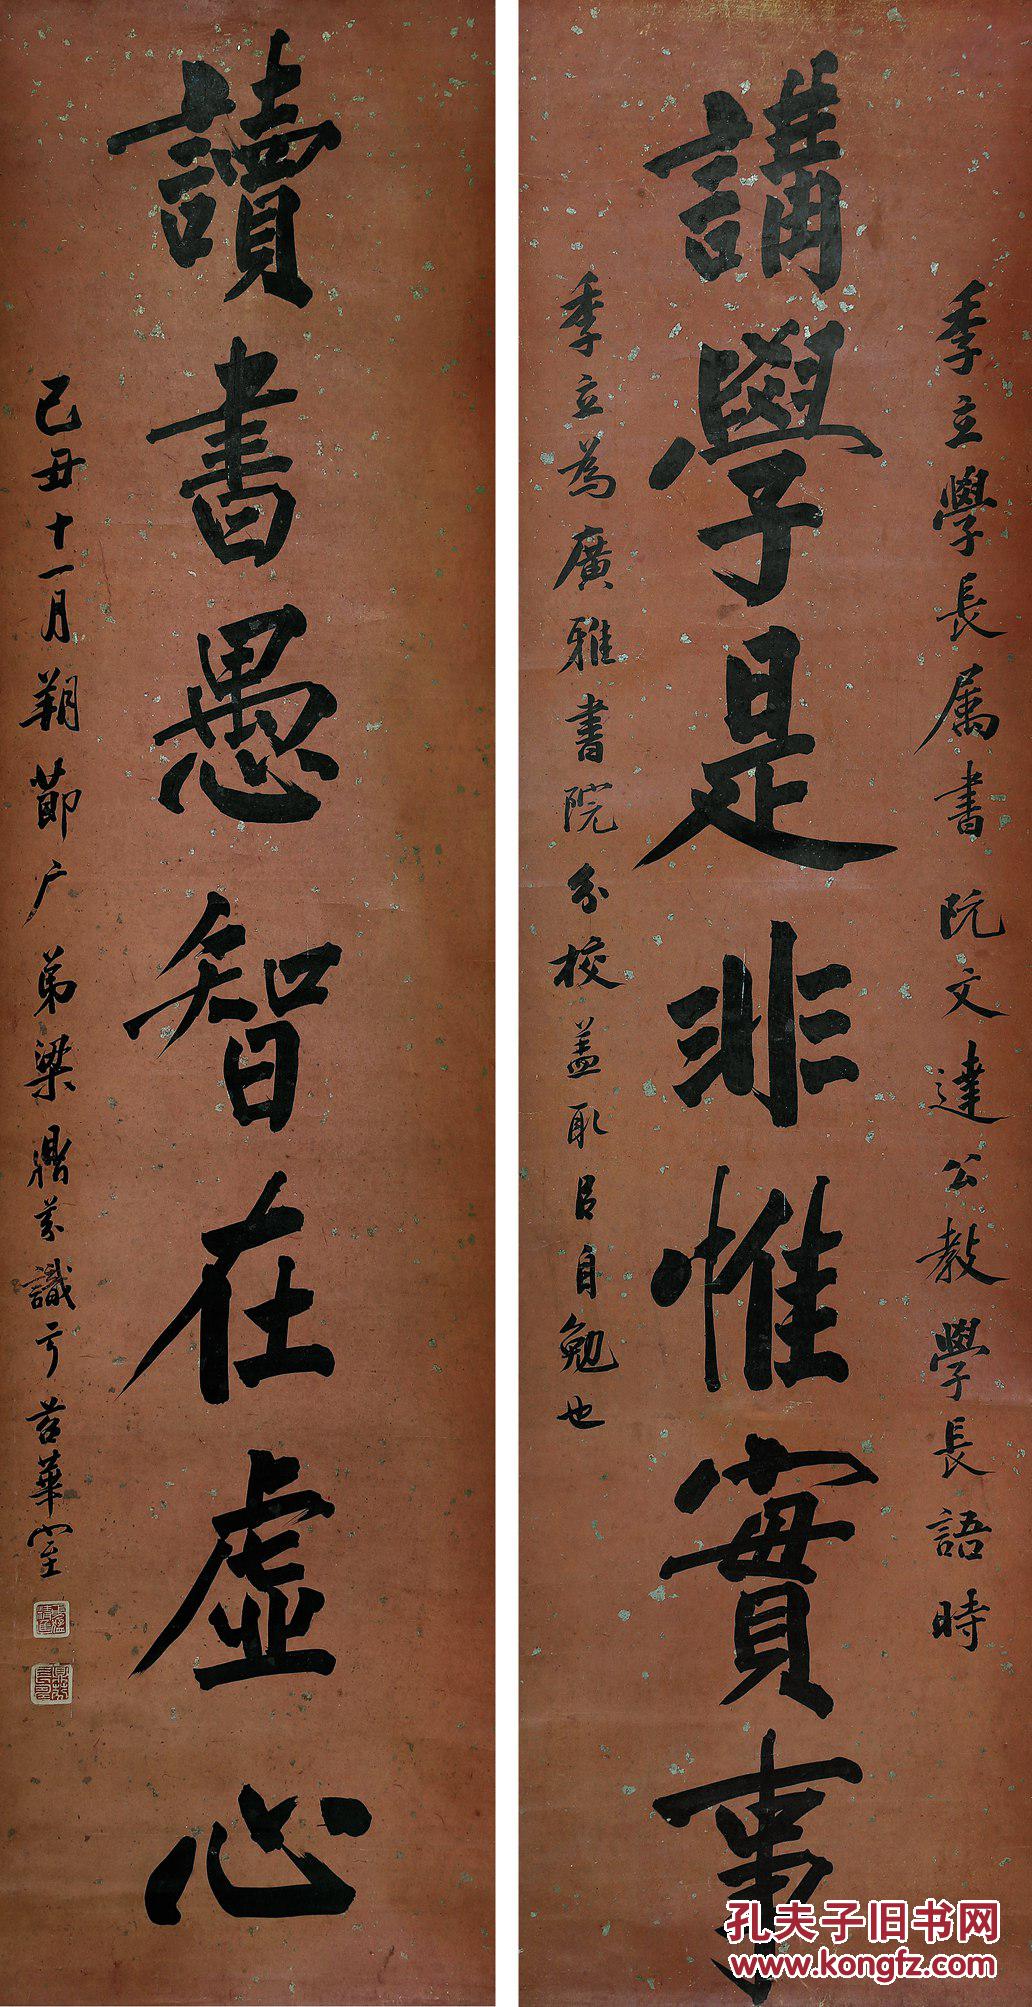 季立學長属書阮文達公教學長語時
講學是非惟實事
季立為廣雅書院分校盖取㠯自勉也
讀書愚智在虛心
己丑十一月朔節广弟梁鼎芬識于苕華室
孔夫子旧书网
www.kongfz.com